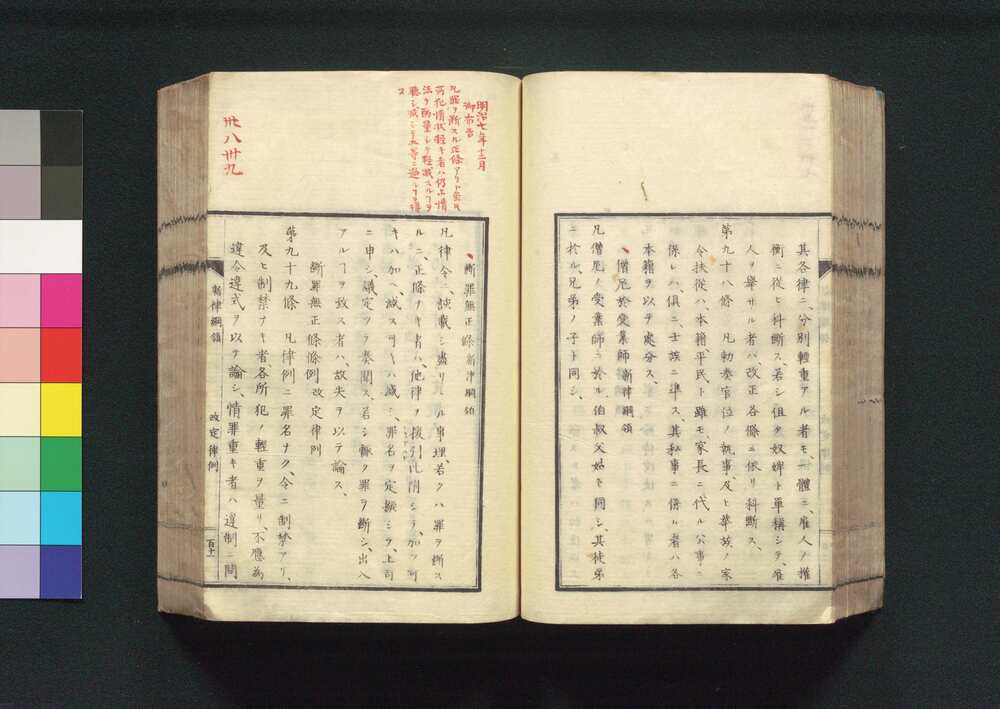 其各律ニ分別輕重アル者モ、一體ニ、雇人ノ權
衡ニ從ヒ科斷ス、若シ但タ奴婢ト單稱シテ、雇
人ヲ擧サル者ハ改正各條ニ依リ科斷ス、
第九十八條 凡勅奏官位ノ執事、及ヒ華族ノ家
令扶從ハ、本籍平民ト雖モ、家長ニ代ル公事ニ
係レハ、俱ニ士族ニ準ス、其私事ニ係ル者ハ各
本籍ヲ以テ處分ス、
僧尼於受業師 新律綱領
凡僧尼ノ受業師ニ於ル、伯叔父姑ト同シ、其徒弟
ニ於ル、兄弟ノ子ト同シ、
明治七年十二月
御布告
凡罪ヲ斷スル正條アリト雖モ
所犯情狀輕キ者ハ仍ホ情
法ヲ酌量シテ輕減スルヿヲ
聽シ減シテ五等ニ過クルヿヲ得
ス
卅八卅九
斷罪無正條 新律綱領
凡律令ニ、該載シ盡サヽル事理、若クハ罪ヲ斷ス
ルニ、正條ナキ者ハ、他律ヲ援引比附シテ、加フ可
キハ加ヘ、減ス可キハ減シ、罪名ヲ定擬シテ、上司
ニ申シ、議定ツテ奏聞ス、若シ輙ク罪ヲ斷シ、出入
アルヿヲ致ス者ハ、故失ヲ以テ論ス、
斷罪無正條條例 改定律例
第九十九條 凡律例ニ罪名ナク、令ニ制禁アリ、
及ヒ制禁ナキ者、各所犯ノ輕重ヲ量リ、不應爲
違令違式ヲ以テ論シ、情罪重キ者ハ違制ニ問
新律綱領
改定律例
百十一